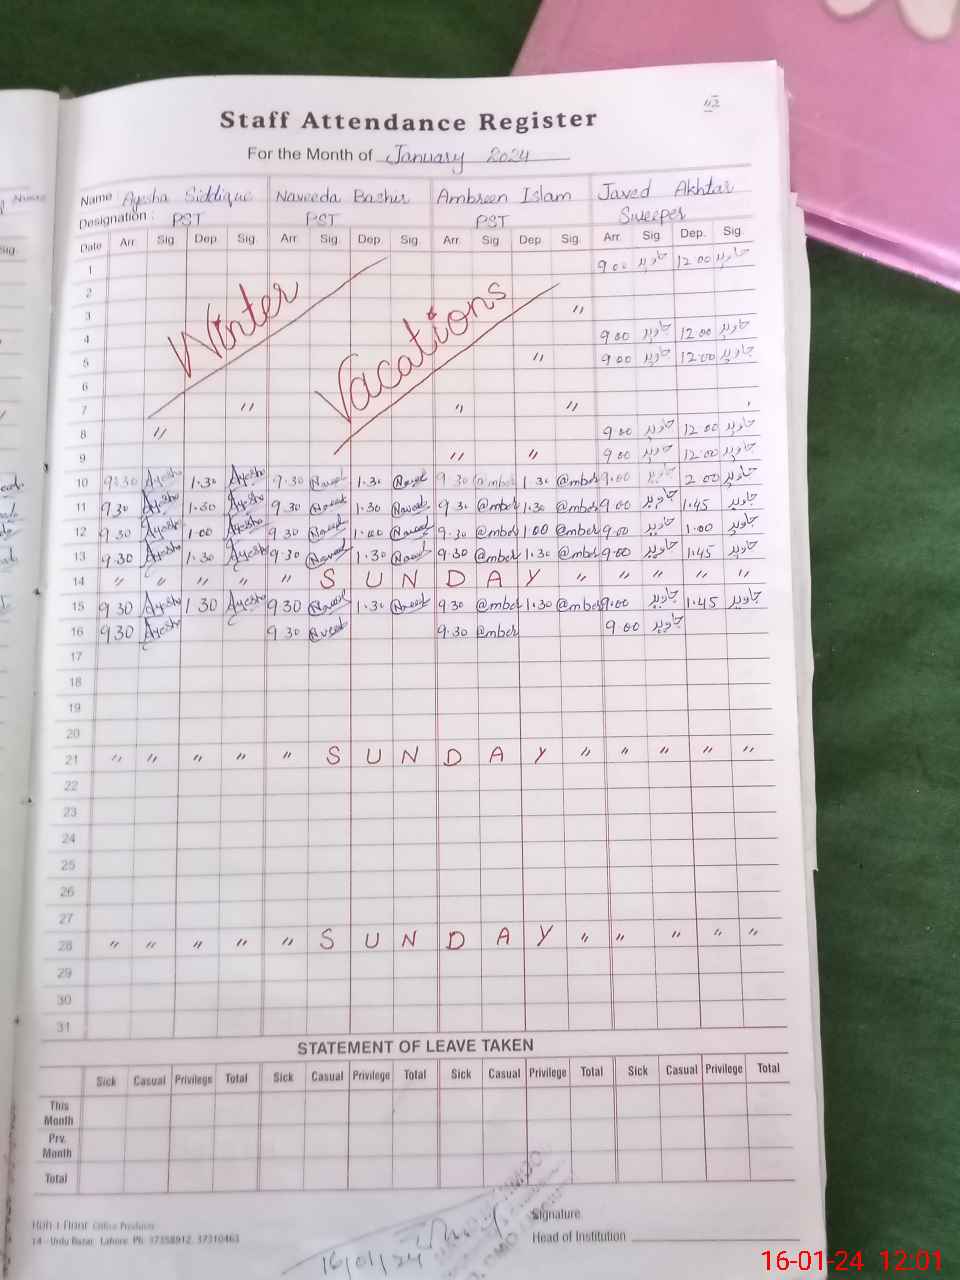 Staff Attendance Register
For the Month of January 2024
Name Ayesha Siddique Naveeda Bashir Ambreen Islam Javed Akhtar
Designation : PST PST PST Sweeper
Date Arr. Sig. Dep. Sig. Arr. Sig. Dep. Sig. Arr. Sig. Dep. Sig. Arr. Sig. Dep. Sig.
1 9 00 جاوید 12 00 جاوید
2
3 〃
4 9 00 جاوید 12 00 جاوید
5 〃 9 00 جاوید 12 00 جاوید
6
7 〃 〃 〃
8 〃 9 00 جاوید 12 00 جاوید
9 〃 〃 9 00 جاوید 12 00 جاوید
Winter Vacations
10 9 30 Ayesha 1.30 Ayesha 9.30 Naveed 1.30 Naveed 9 30 @mber 1 30 @mber 9.00 جاوید 2 00 جاوید
11 9 30 Ayesha 1.30 Ayesha 9.30 Naveed 1.30 Naveed 9 30 @mber 1.30 @mber 9.00 جاوید 1.45 جاوید
12 9 30 Ayesha 1.00 Ayesha 9 30 Naveed 1.00 Naveed 9.30 @mber 1.00 @mber 9.00 جاوید 1.00 جاوید
13 9.30 Ayesha 1.30 Ayesha 9.30 Naveed 1.30 Naveed 9.30 @mber 1.30 @mber 9.00 جاوید 1.45 جاوید
14 〃 〃 〃 〃 〃 S U N D A Y 〃 〃 〃 〃 〃
15 9 30 Ayesha 1 30 Ayesha 9 30 Naveed 1.30 Naveed 9 30 @mber 1.30 @mber 9.00 جاوید 1.45 جاوید
16 9 30 Ayesha 9 30 Naveed 9.30 @mber 9.00 جاوید
17
18
19
20
21 〃 〃 〃 〃 〃 S U N D A Y 〃 〃 〃 〃 〃
22
23
24
25
26
27
28 〃 〃 〃 〃 〃 S U N D A Y 〃 〃 〃 〃 〃
29
30
31
STATEMENT OF LEAVE TAKEN
Sick Casual Privilege Total Sick Casual Privilege Total Sick Casual Privilege Total Sick Casual Privilege Total
This Month
Prv. Month
Total
Signature
Head of Institution
Office Products
14 - Urdu Bazar, Lahore. Ph: 37358912, 37310463
16/01/24
16-01-24 12:01